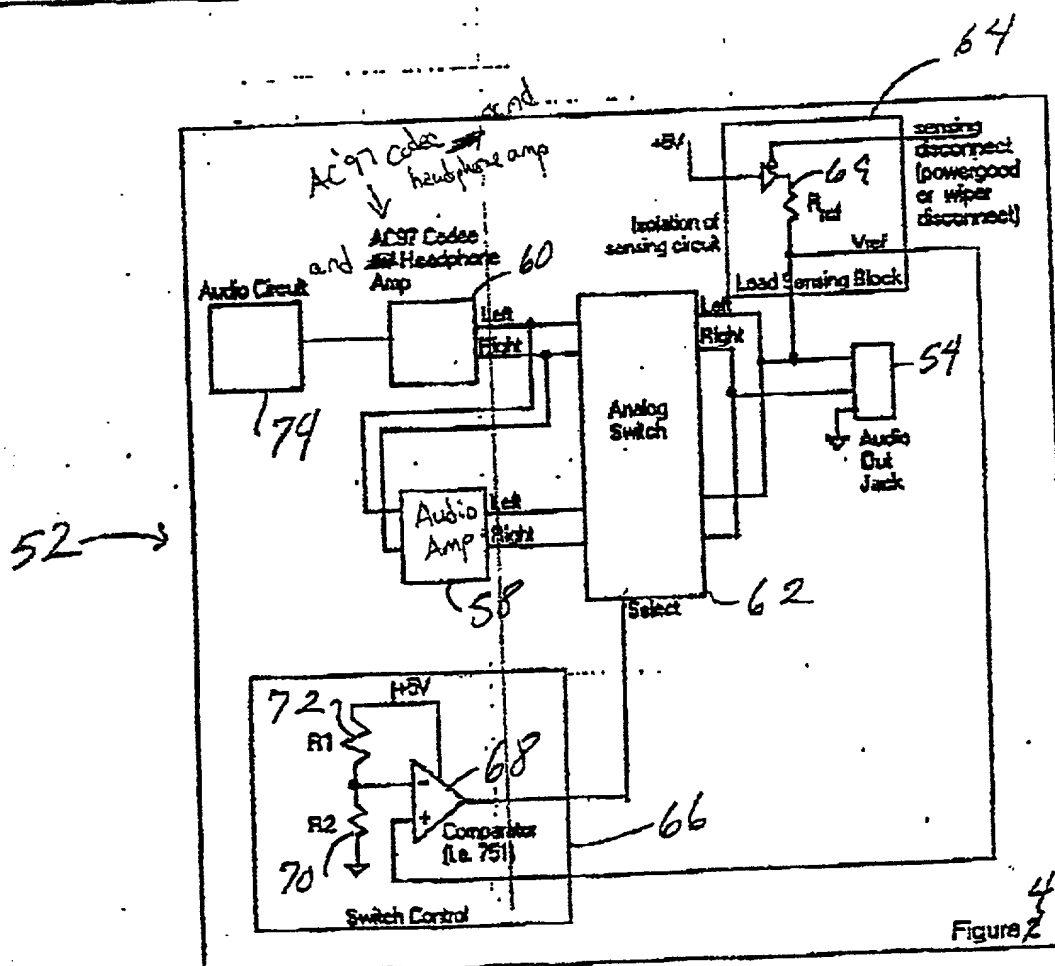 64
and
AC'97 Codec
headphone amp
+5V
sensing
disconnect
(powergood
or wiper
disconnect)
69
Isolation of
sensing circuit
Vref
Load Sensing Block
AC97 Codec
and Headphone
Amp
60
Audio Circuit
Left
Right
Left
Right
54
Analog
Switch
74
Audio
Out
Jack
52
Audio
Amp
Left
Right
58
62
Select
+5V
72
R1
68
-
+
R2
70
Comparator
(i.e. 751)
66
Switch Control
4
Figure 2